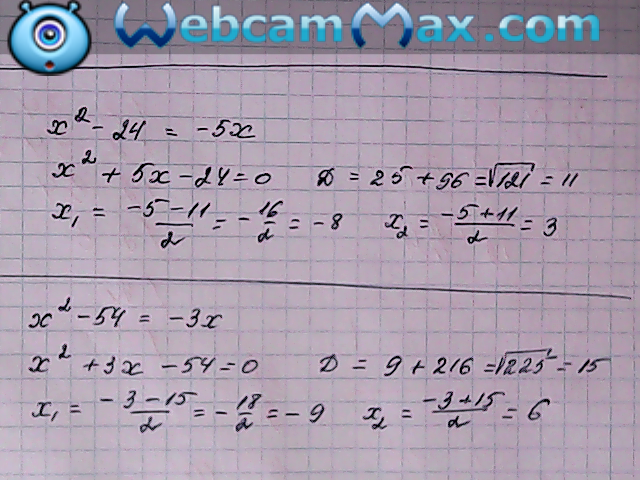 WebcamMax.com
x² - 24 = -5x
x² + 5x - 24 = 0 D = 25 + 96 = √121 = 11
x₁ = (-5 - 11)/2 = -16/2 = -8 x₂ = (-5 + 11)/2 = 3
x² - 54 = -3x
x² + 3x - 54 = 0 D = 9 + 216 = √225 = 15
x₁ = (-3 - 15)/2 = -18/2 = -9 x₂ = (-3 + 15)/2 = 6